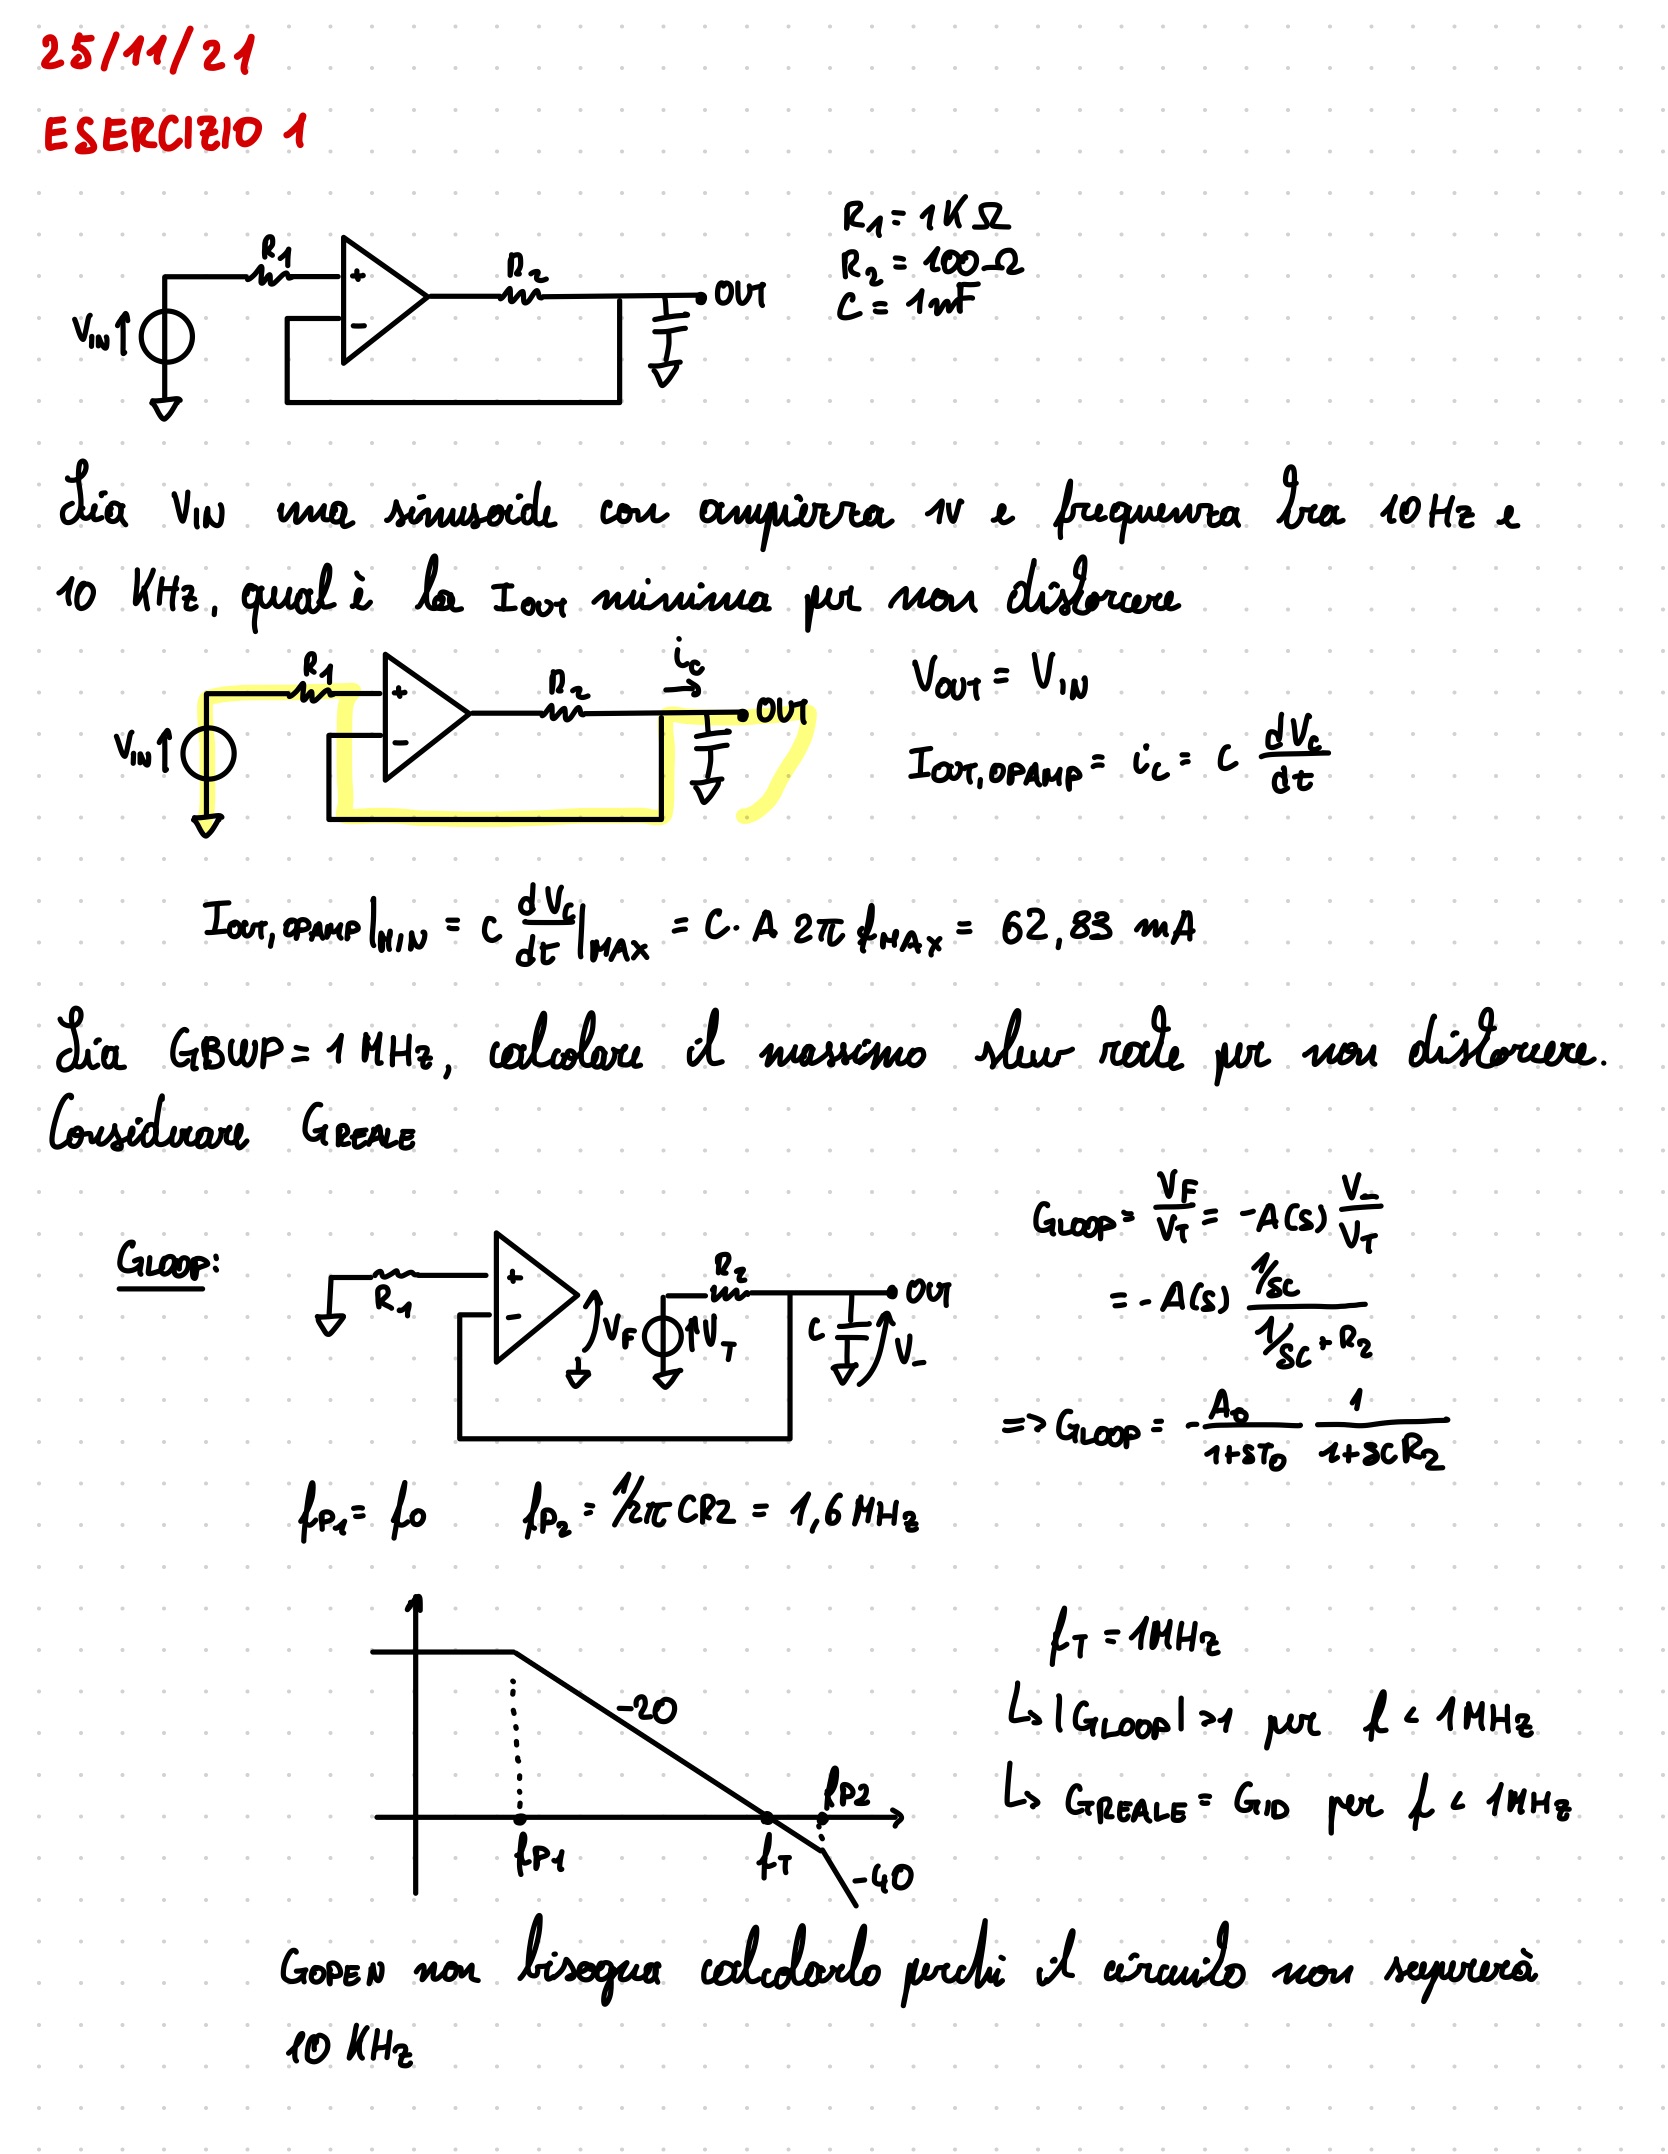 25/11/21
ESERCIZIO 1
R1 = 1KΩ
R2 = 100Ω
C = 1nF
R1
R2
+
−
VIN
OUT
Sia VIN una sinusoide con ampiezza 1V e frequenza tra 10Hz e
10 KHz, qual è la IOUT minima per non distorcere
R1
R2
ic
+
−
VIN
OUT
VOUT = VIN
IOUT,OPAMP = ic = C dVc/dt
IOUT,OPAMP|MIN = C dVc/dt|MAX = C · A 2π fMAX = 62,83 mA
Sia GBWP = 1 MHz, calcolare il massimo slew rate per non distorcere.
Considerare GREALE
GLOOP:
R1
+
−
VF
VT
R2
C
V−
OUT
GLOOP = VF/VT = -A(s) V−/VT
= -A(s) (1/sC)/(1/sC + R2)
=> GLOOP = - A0/(1+sT0) 1/(1+sCR2)
fP1 = f0 fP2 = 1/2πCR2 = 1,6 MHz
-20
fP1
fT
fP2
-40
fT = 1MHz
↳ |GLOOP| >1 per f < 1MHz
↳ GREALE = GID per f < 1MHz
GOPEN non bisogna calcolarlo perchi il circuito non supererà
10 KHz